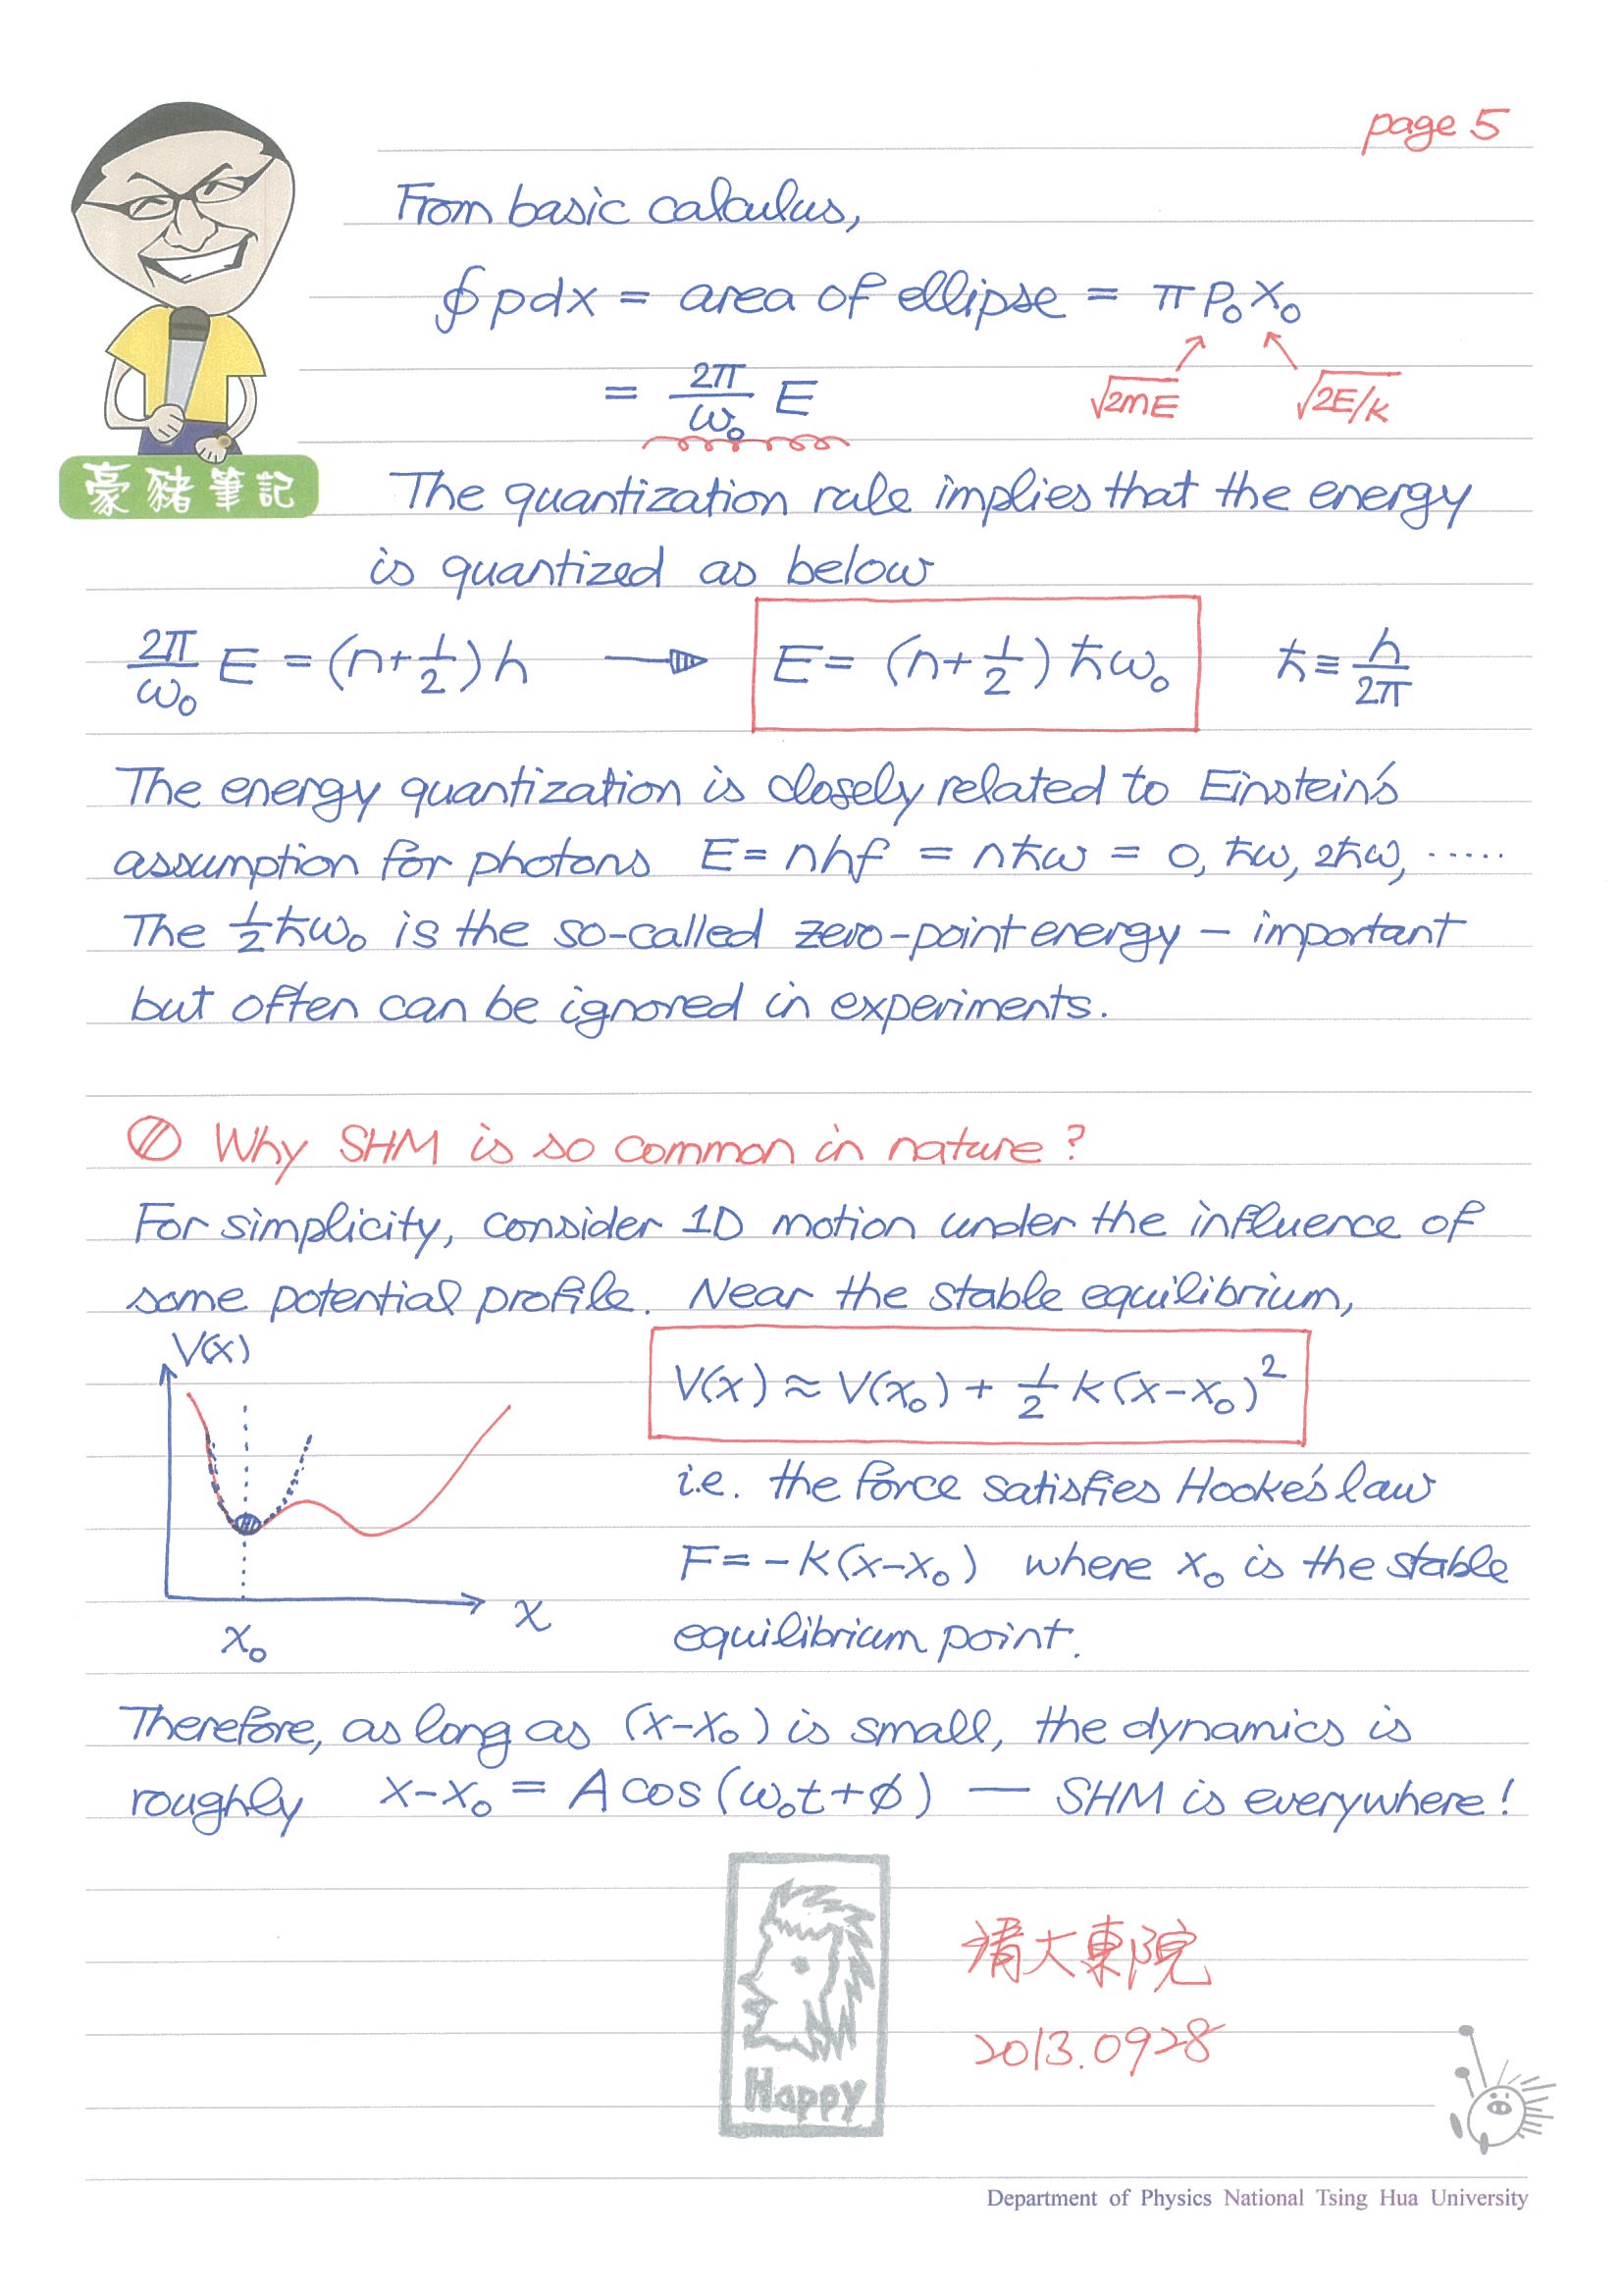 page 5
From basic calculus,
∮pdx = area of ellipse = πp₀x₀
= 2π/ω₀ E √2mE √2E/k
豪豬筆記
The quantization rule implies that the energy
is quantized as below
2π/ω₀ E = (n+1/2)h → E = (n+1/2)ħω₀ ħ ≡ h/2π
The energy quantization is closely related to Einstein's
assumption for photons E = nhf = nħω = 0, ħω, 2ħω, ·····
The 1/2ħω₀ is the so-called zero-point energy – important
but often can be ignored in experiments.
Why SHM is so common in nature?
For simplicity, consider 1D motion under the influence of
some potential profile. Near the stable equilibrium,
V(x)
V(x) ≈ V(x₀) + 1/2 k(x-x₀)²
i.e. the force satisfies Hooke's law
F = -k(x-x₀) where x₀ is the stable
x
x₀
equilibrium point.
Therefore, as long as (x-x₀) is small, the dynamics is
roughly x-x₀ = A cos(ω₀t+φ) — SHM is everywhere!
清大東院
2013.0928
Happy
Department of Physics National Tsing Hua University